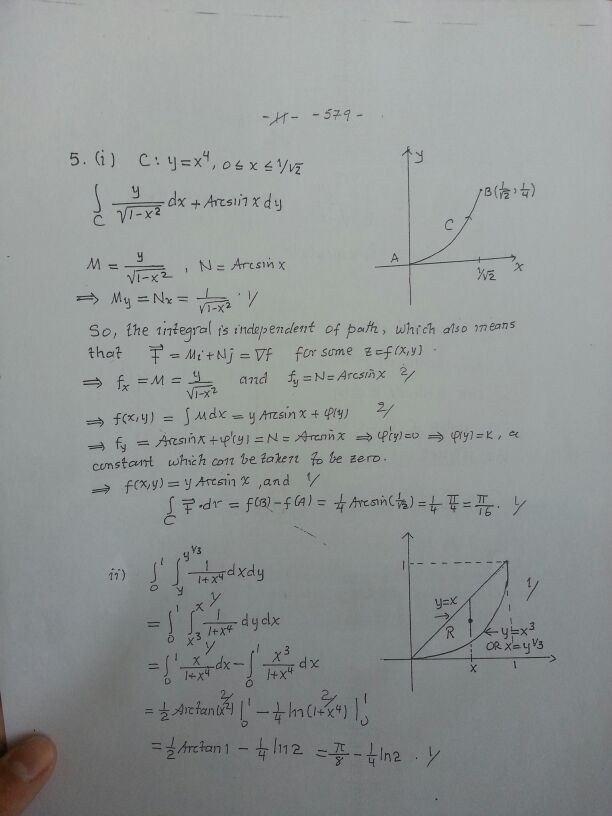 - 11 - - 579 -
5. (i) C: y = x⁴, 0 ≤ x ≤ 1/√2
∫_C y/√(1-x²) dx + Arcsin x dy
y
B(1/√2, 1/4)
C
A
1/√2
x
M = y/√(1-x²) , N = Arcsin x
⟹ My = Nx = 1/√(1-x²) . 1/
So, the integral is independent of path, which also means
that F⃗ = Mi + Nj = ∇f for some z = f(x,y) .
⟹ fx = M = y/√(1-x²) and fy = N = Arcsin x 2/
⟹ f(x,y) = ∫ M dx = y Arcsin x + φ(y) 2/
⟹ fy = Arcsin x + φ'(y) = N = Arcsin x ⟹ φ'(y) = 0 ⟹ φ(y) = K, a
constant which can be taken to be zero.
⟹ f(x,y) = y Arcsin x , and 1/
∫_C F⃗ · dr = f(B) - f(A) = 1/4 Arcsin(1/√2) = 1/4 π/4 = π/16 . 1/
ii) ∫₀¹ ∫_y^{y^{1/3}} 1/(1+x⁴) dx dy
= ∫₀¹ ∫_{x³}^{x} 1/(1+x⁴) dy dx 1/
= ∫₀¹ x/(1+x⁴) dx - ∫₀¹ x³/(1+x⁴) dx 1/
= 1/2 Arctan(x²) |₀¹ - 1/4 ln(1+x⁴) |₀¹ 2/ 2/
= 1/2 Arctan 1 - 1/4 ln 2 = π/8 - 1/4 ln 2 . 1/
1
1/
y = x
R
y = x³
OR x = y^{1/3}
x
1